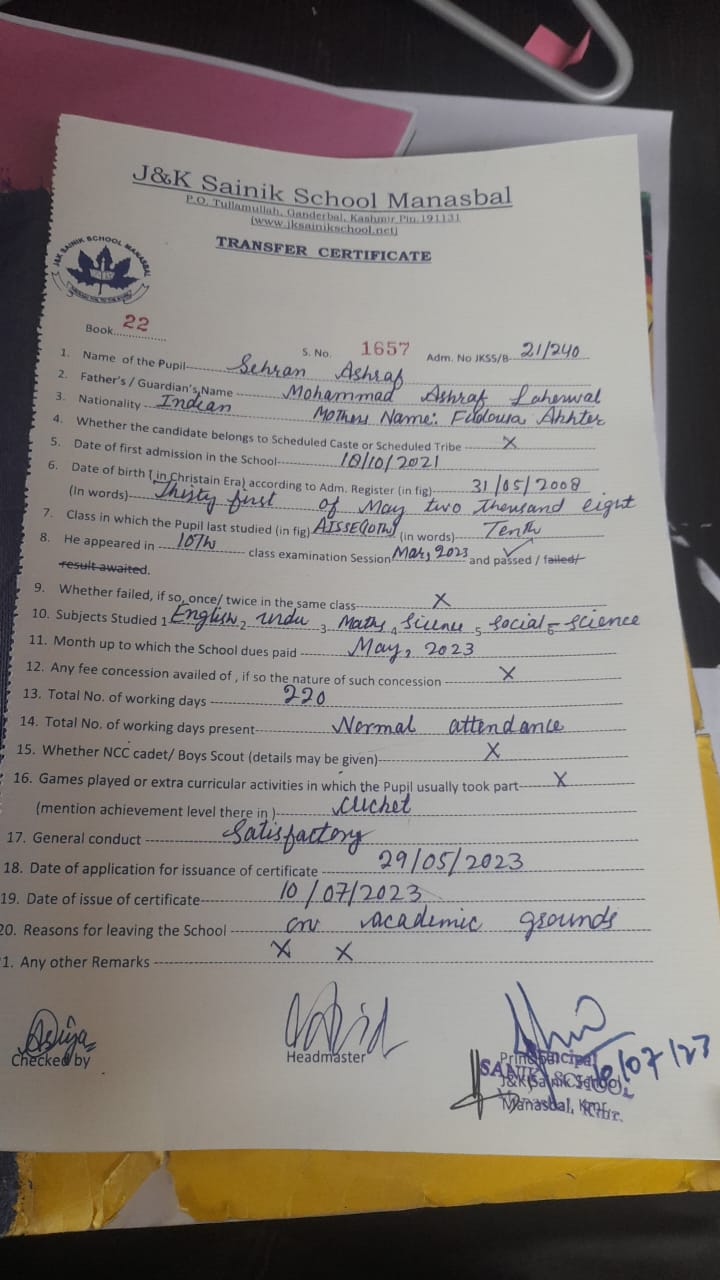 J&K Sainik School Manasbal
P.O. Tullamullah, Ganderbal, Kashmir Pin.191131
(www.jksainikschool.net)
TRANSFER CERTIFICATE
J&K SAINIK SCHOOL MANASBAL
Book 22
S. No. 1657 Adm. No JKSS/B 21/240
1. Name of the Pupil Sehran Ashraf
2. Father's / Guardian's Name Mohammad Ashraf Laherwal
3. Nationality Indian Mothers Name: Firdousa Akhter
4. Whether the candidate belongs to Scheduled Caste or Scheduled Tribe X
5. Date of first admission in the School 18/10/2021
6. Date of birth (in Christain Era) according to Adm. Register (in fig) 31/05/2008
(In words) Thirty first of May two Thousand eight
7. Class in which the Pupil last studied (in fig) AISSE(10TH) (in words) Tenth
8. He appeared in 10Th class examination Session Mar, 2023 and passed / failed/
result awaited.
9. Whether failed, if so, once/ twice in the same class X
10. Subjects Studied 1 English 2 urdu 3 Maths 4 Science 5 Social 6 Science
11. Month up to which the School dues paid May, 2023
12. Any fee concession availed of , if so the nature of such concession X
13. Total No. of working days 220
14. Total No. of working days present Normal attendance
15. Whether NCC cadet/ Boys Scout (details may be given) X
16. Games played or extra curricular activities in which the Pupil usually took part X
(mention achievement level there in ) Cricket
17. General conduct Satisfactory
18. Date of application for issuance of certificate 29/05/2023
19. Date of issue of certificate 10/07/2023
20. Reasons for leaving the School on academic grounds
1. Any other Remarks X X
Asiya
Checked by
Headmaster
Principal
J&K Sainik School
Manasbal, Kmr.
Principal
SANIK SCHOOL
10/07/23